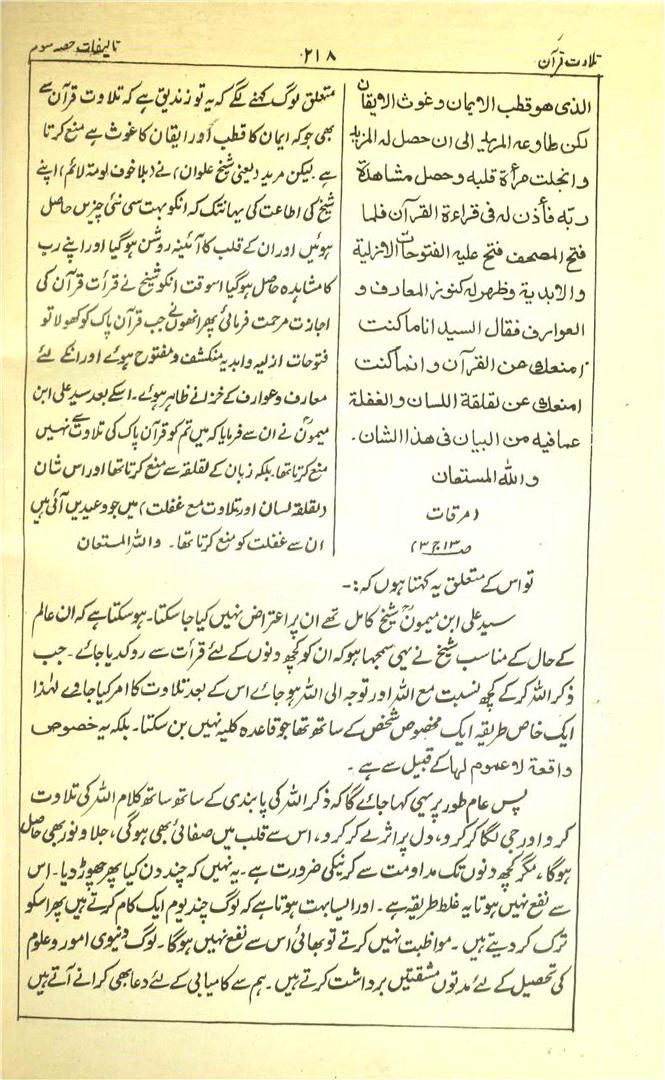 تلاوت قرآن
۲۱۸
تالیفات حصہ سوم
الذی ھو قطب الایمان و غوث الایقان
لکن طاوعہ المرید الی ان حصل لہ المزید
و انجلت مرأۃ قلبہ و حصل مشاھدۃ
ربّہ فأذن لہ فی قراءۃ القرآن فلما
فتح المصحف فتح علیہ الفتوحات الازلیۃ
والابدیۃ وظھر لہ کنوز المعارف و
العوارف فقال السید انا ما کنت
امنعک عن القرآن و انما کنت
امنعک عن لقلقۃ اللسان والغفلۃ
عما فیہ من البیان فی ھذا الشان۔
واللہ المستعان
(مرقات
ص۱۳ ج۳)
متعلق لوگ کہنے لگے کہ یہ تو زندیق ہے کہ تلاوت قرآن سے
بھی جو کہ ایمان کا قطب اور ایقان کا غوث ہے منع کرتا
ہے لیکن مرید (یعنی شیخ علوان) نے (بلا خوف لومۃ لائم) اپنے
شیخ کی اطاعت کی یہانتک کہ انکو بہت سی نئی چیزیں حاصل
ہوئیں اور ان کے قلب کا آئینہ روشن ہوگیا اور اپنے رب
کا مشاہدہ حاصل ہوگیا اسوقت انکو شیخ نے قرأت قرآن کی
اجازت مرحمت فرمائی پھر انھوں نے جب قرآن پاک کو کھولا تو
فتوحات ازلیہ وابدیہ منکشف ومفتوح ہوئے اور انکے لئے
معارف وعوارف کے خزانے ظاہر ہوئے۔ اسکے بعد سید علی ابن
میمونؒ نے ان سے فرمایا کہ میں تم کو قرآن پاک کی تلاوت سے نہیں
منع کرتا تھا۔ بلکہ زبان کے لقلقہ سے منع کرتا تھا اور اس شان
(لقلقۂ لسان اور تلاوت مع غفلت) میں جو وعیدیں آئی ہیں
ان سے غفلت کو منع کرتا تھا۔ واللہ المستعان
تو اس کے متعلق یہ کہتا ہوں کہ:۔
سید علی ابن میمونؒ شیخ کامل تھے ان پر اعتراض نہیں کیا جا سکتا۔ ہو سکتا ہے کہ ان عالم
کے حال کے مناسب شیخ نے یہی سمجھا ہو کہ ان کو کچھ دنوں کے لئے قرأت سے روکدیا جائے۔ جب
ذکر اللہ کرکے کچھ نسبت مع اللہ اور توجہ الی اللہ ہو جائے اس کے بعد تلاوت کا امر کیا جاوے لہٰذا
ایک خاص طریقہ ایک مخصوص شخص کے ساتھ تھا جو قاعدہ کلیہ نہیں بن سکتا۔ بلکہ یہ خصوص
واقعة لا عموم لہا کے قبیل سے ہے۔
پس عام طور پر یہی کہا جائے گا کہ ذکر اللہ کی پابندی کے ساتھ ساتھ کلام اللہ کی تلاوت
کرو اور جی لگا کر کرو، دل پر اثر لے کر کرو، اس سے قلب میں صفائی بھی ہوگی، جلا و نور بھی حاصل
ہوگا، مگر کچھ دنوں تک مداومت سے کرنیکی ضرورت ہے۔ یہ نہیں کہ چند دن کیا پھر چھوڑ دیا۔ اس
سے نفع نہیں ہوتا یہ غلط طریقہ ہے۔ اور ایسا بہت ہوتا ہے کہ لوگ چند یوم ایک کام کرتے ہیں پھر اسکو
ترک کر دیتے ہیں۔ مواظبت نہیں کرتے تو بھائی اس سے نفع نہیں ہوگا۔ لوگ دنیوی امور و علوم
کی تحصیل کے لئے مدتوں مشقتیں برداشت کرتے ہیں۔ ہم سے کامیابی کے لئے دعا بھی کرانے آتے ہیں